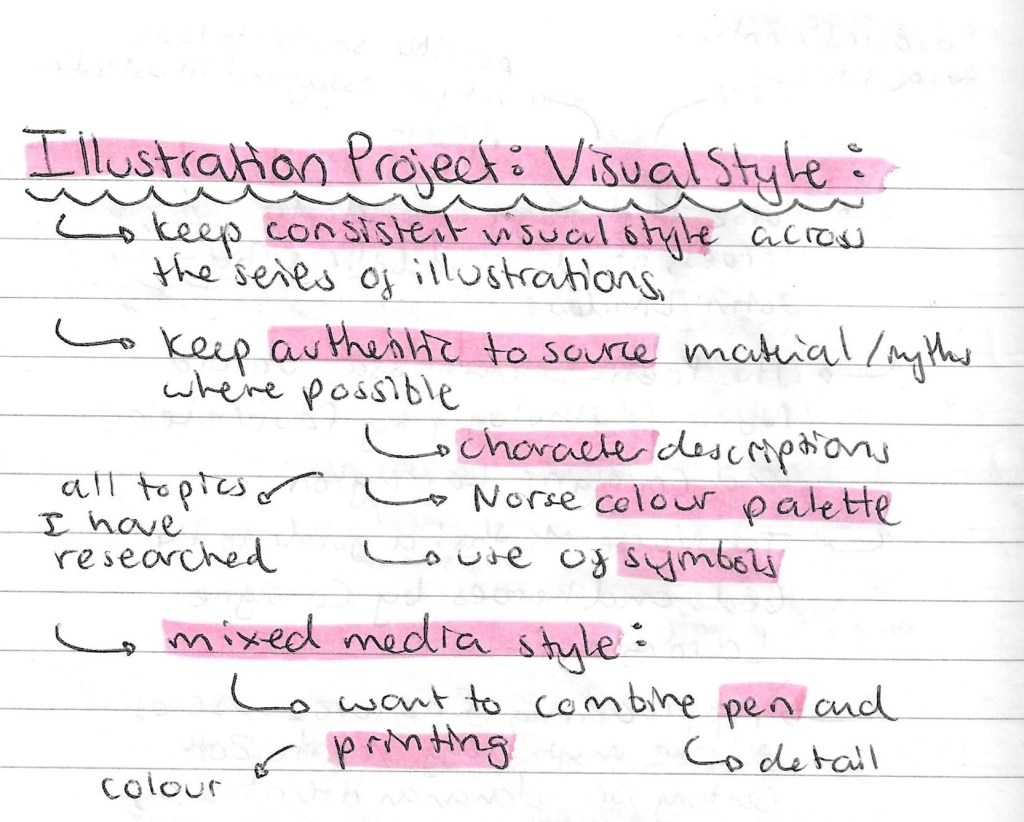 Illustration Project: Visual Style:
keep consistent visual style across
the series of illustrations.
keep authentic to source material/myths
where possible
character descriptions
all topics
Norse colour palette
I have
researched
use of symbols
mixed media style:
want to combine pen and
printing
detail
colour